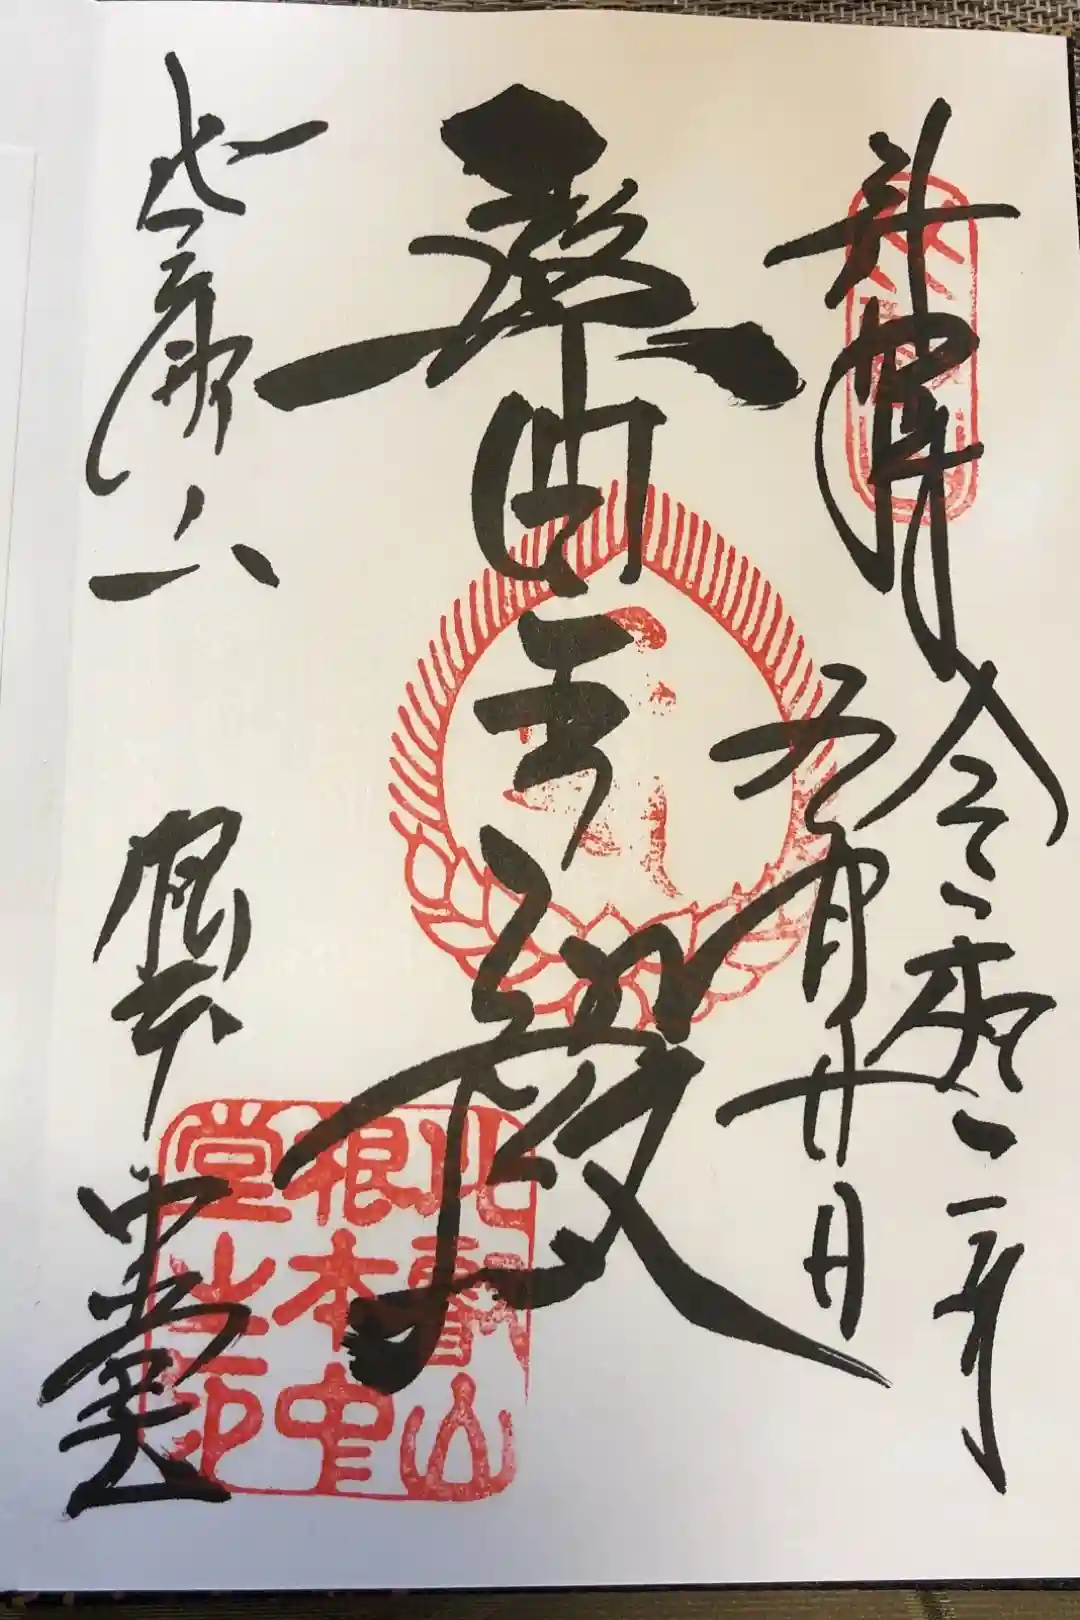 奉拝 令和二年
五月廿日
醫王殿
比叡山 根本中堂
比叡山
根本中
堂之印